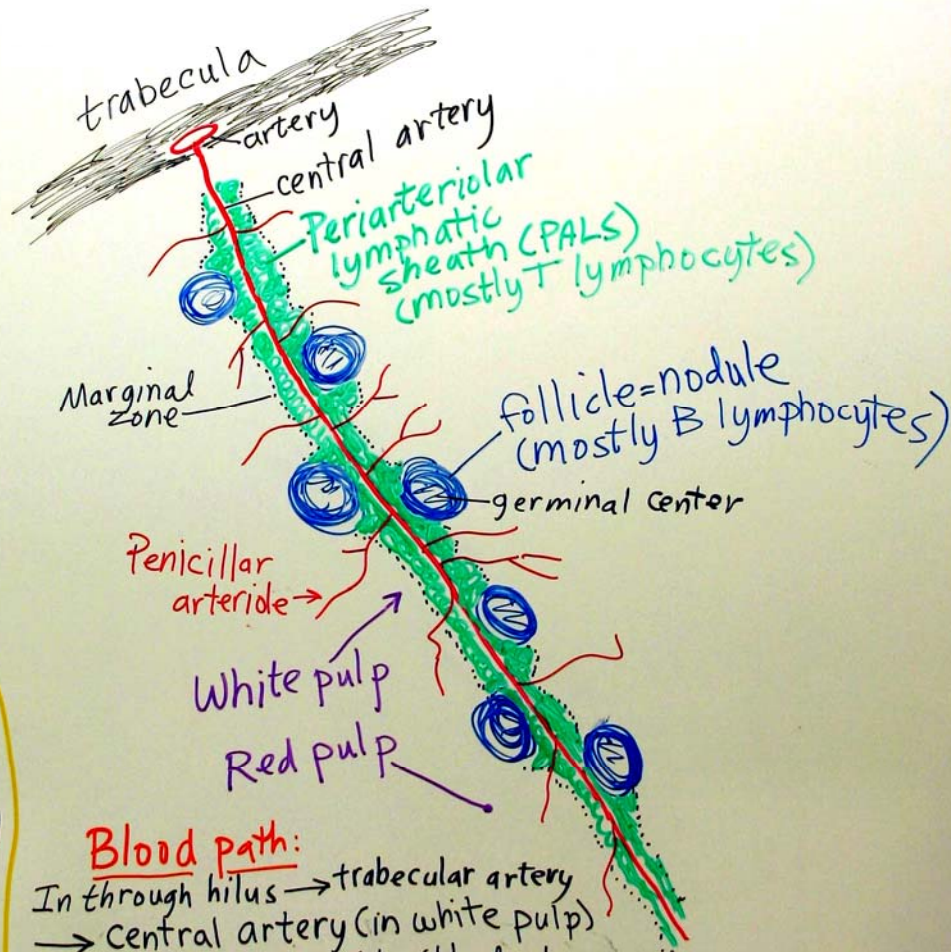 trabecula
artery
central artery
Periarteriolar
lymphatic
sheath (PALS)
(mostly T lymphocytes)
Marginal
zone
follicle=nodule
(mostly B lymphocytes)
germinal center
Penicillar
arteriole→
White pulp
Red pulp
Blood path:
In through hilus → trabecular artery
→ central artery (in white pulp)